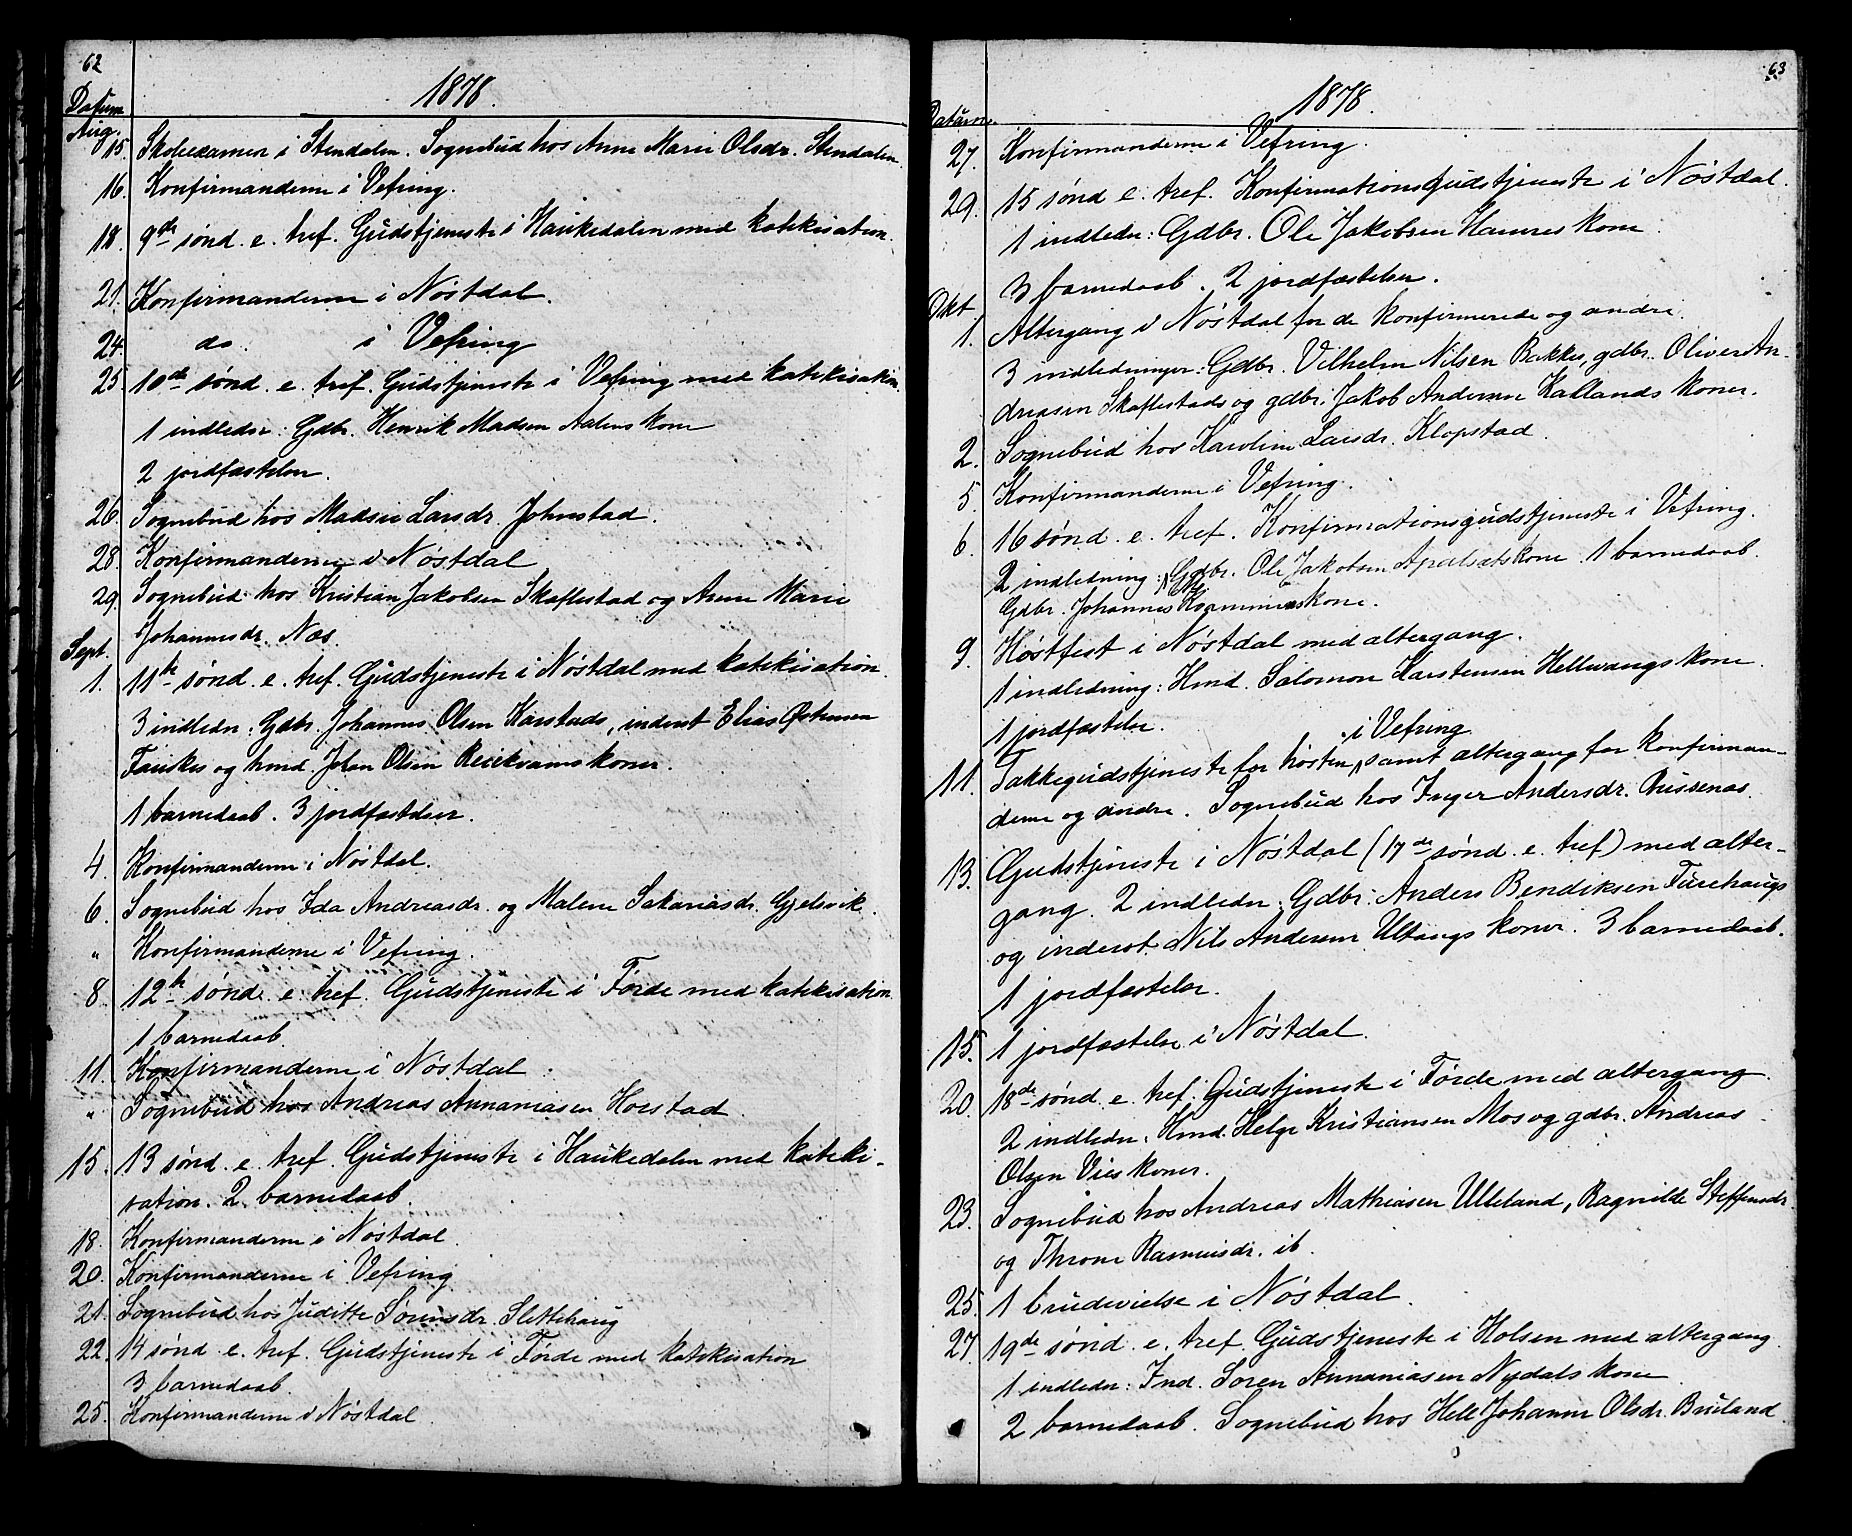 62
1878.
Datum
Aug.
15. Skoleexamen i Stendalen. Sognebud hos Anne Marie Olsdr. Stendalen
16. Konfirmanderne i Vefring.
18. 9de sønd. e. tref. Gudstjeneste i Haukedalen med katekisation.
21. Konfirmanderne i Nøstdal.
24. do. i Vefring
25. 10de sønd. e. tref. Gudstjeneste i Vefring med katekisation.
1 indledn: Gdbr. Henrik Madsen Aalens kone
2 jordfæstelser.
26. Sognebud hos Madsie Larsdr. Johnstad.
28. Konfirmanderne i Nøstdal
29. Sognebud hos Kristian Jakobsen Skaflestad og Anne Marie
Johannesdr. Næs.
Sept.
1. 11te sønd. e. tref. Gudstjeneste i Nøstdal med katekisation.
3 indledn: Gdbr. Johannes Olsen Karstads, inderst Elias Østensen
Fauskes og hmd. Johan Olsen Reiekvams koner.
1 barnedaab. 3 jordfæstelser.
4. Konfirmanderne i Nøstdal.
6. Sognebud hos Ida Andreasdr. og Malene Sakariasdr. Gjelsvik.
" Konfirmanderne i Vefring.
8. 12te sønd. e. tref. Gudstjeneste i Førde med katekisation.
1 barnedaab.
11. Konfirmanderne i Nøstdal.
" Sognebud hos Andreas Annaniasen Horstad.
15. 13 sønd. e. tref. Gudstjeneste i Haukedalen med kateki-
sation. 2 barnedaab.
18. Konfirmanderne i Nøstdal.
20. Konfirmanderne i Vefring
21. Sognebud hos Juditte Sørensdr. Slettehaug
22. 14 sønd. e. tref. Gudstjeneste i Førde med katekisation
3 barnedaab.
25. Konfirmanderne i Nøstdal.
63
1878.
Datum.
27. Konfirmanderne i Vefring.
29. 15 sønd e. tref. Konfirmationsgudstjeneste i Nøstdal.
1 indledn: Gdbr. Ole Jakobsen Hamres kone.
3 barnedaab. 2 jordfæstelser.
Okt.
1. Altergang i Nøstdal for de konfirmerede og andre.
3 indledninger: Gdbr. Vilhelm Nilsen Bakkes, gdbr. Oliver An-
dreasen Skaflestads og gdbr. Jakob Andersen Kallands koner.
2. Sognebud hos Karoline Larsdr. Klopstad.
5. Konfirmanderne i Vefring.
6. 16 sønd. e. tref. Konfirmationsgudstjeneste i Vefring.
2 indledning: Gdbr. Ole Jakobsen Apalsæts kone. 1 barnedaab.
Gdbr. Johannes kone.
9. Høstfest i Nøstdal med altergang.
1 indledning: Hmd. Salomon Karstensen Hellevangs kone.
1 jordfæstelse.
i Vefring
11. Takkegudstjeneste for høsten, samt altergang for konfirman-
derne og andre. Sognebud hos Inger Andersdr. Russenæs.
13. Gudstjeneste i Nøstdal (17de sønd. e. tref) med alter-
gang. 2 indledn: Gdbr. Anders Bendiksen Furehaugs
og inderst. Nils Andersen Ultangs koner. 3 barnedaab.
1 jordfæstelse.
15. 1 jordfæstelse i Nøstdal.
20. 18de sønd. e. tref. Gudstjeneste i Førde med altergang.
2 indledn. Hmd. Helge Kristiansen Mos og gdbr. Andreas
Olsen Vies koner.
23. Sognebud hos Andreas Mathiasen Ulleland, Ragnilde Steffensdr.
og Throne Rasmusdr. ib.
25. 1 brudevielse i Nøstdal.
27. 19de sønd. e. tref. Gudstjeneste i Holsen med altergang.
1 indledn: Ind. Søren Annaniasen Nydals kone
2 barnedaab. Sognebud hos Hell Johanne Olsdr. Bruland